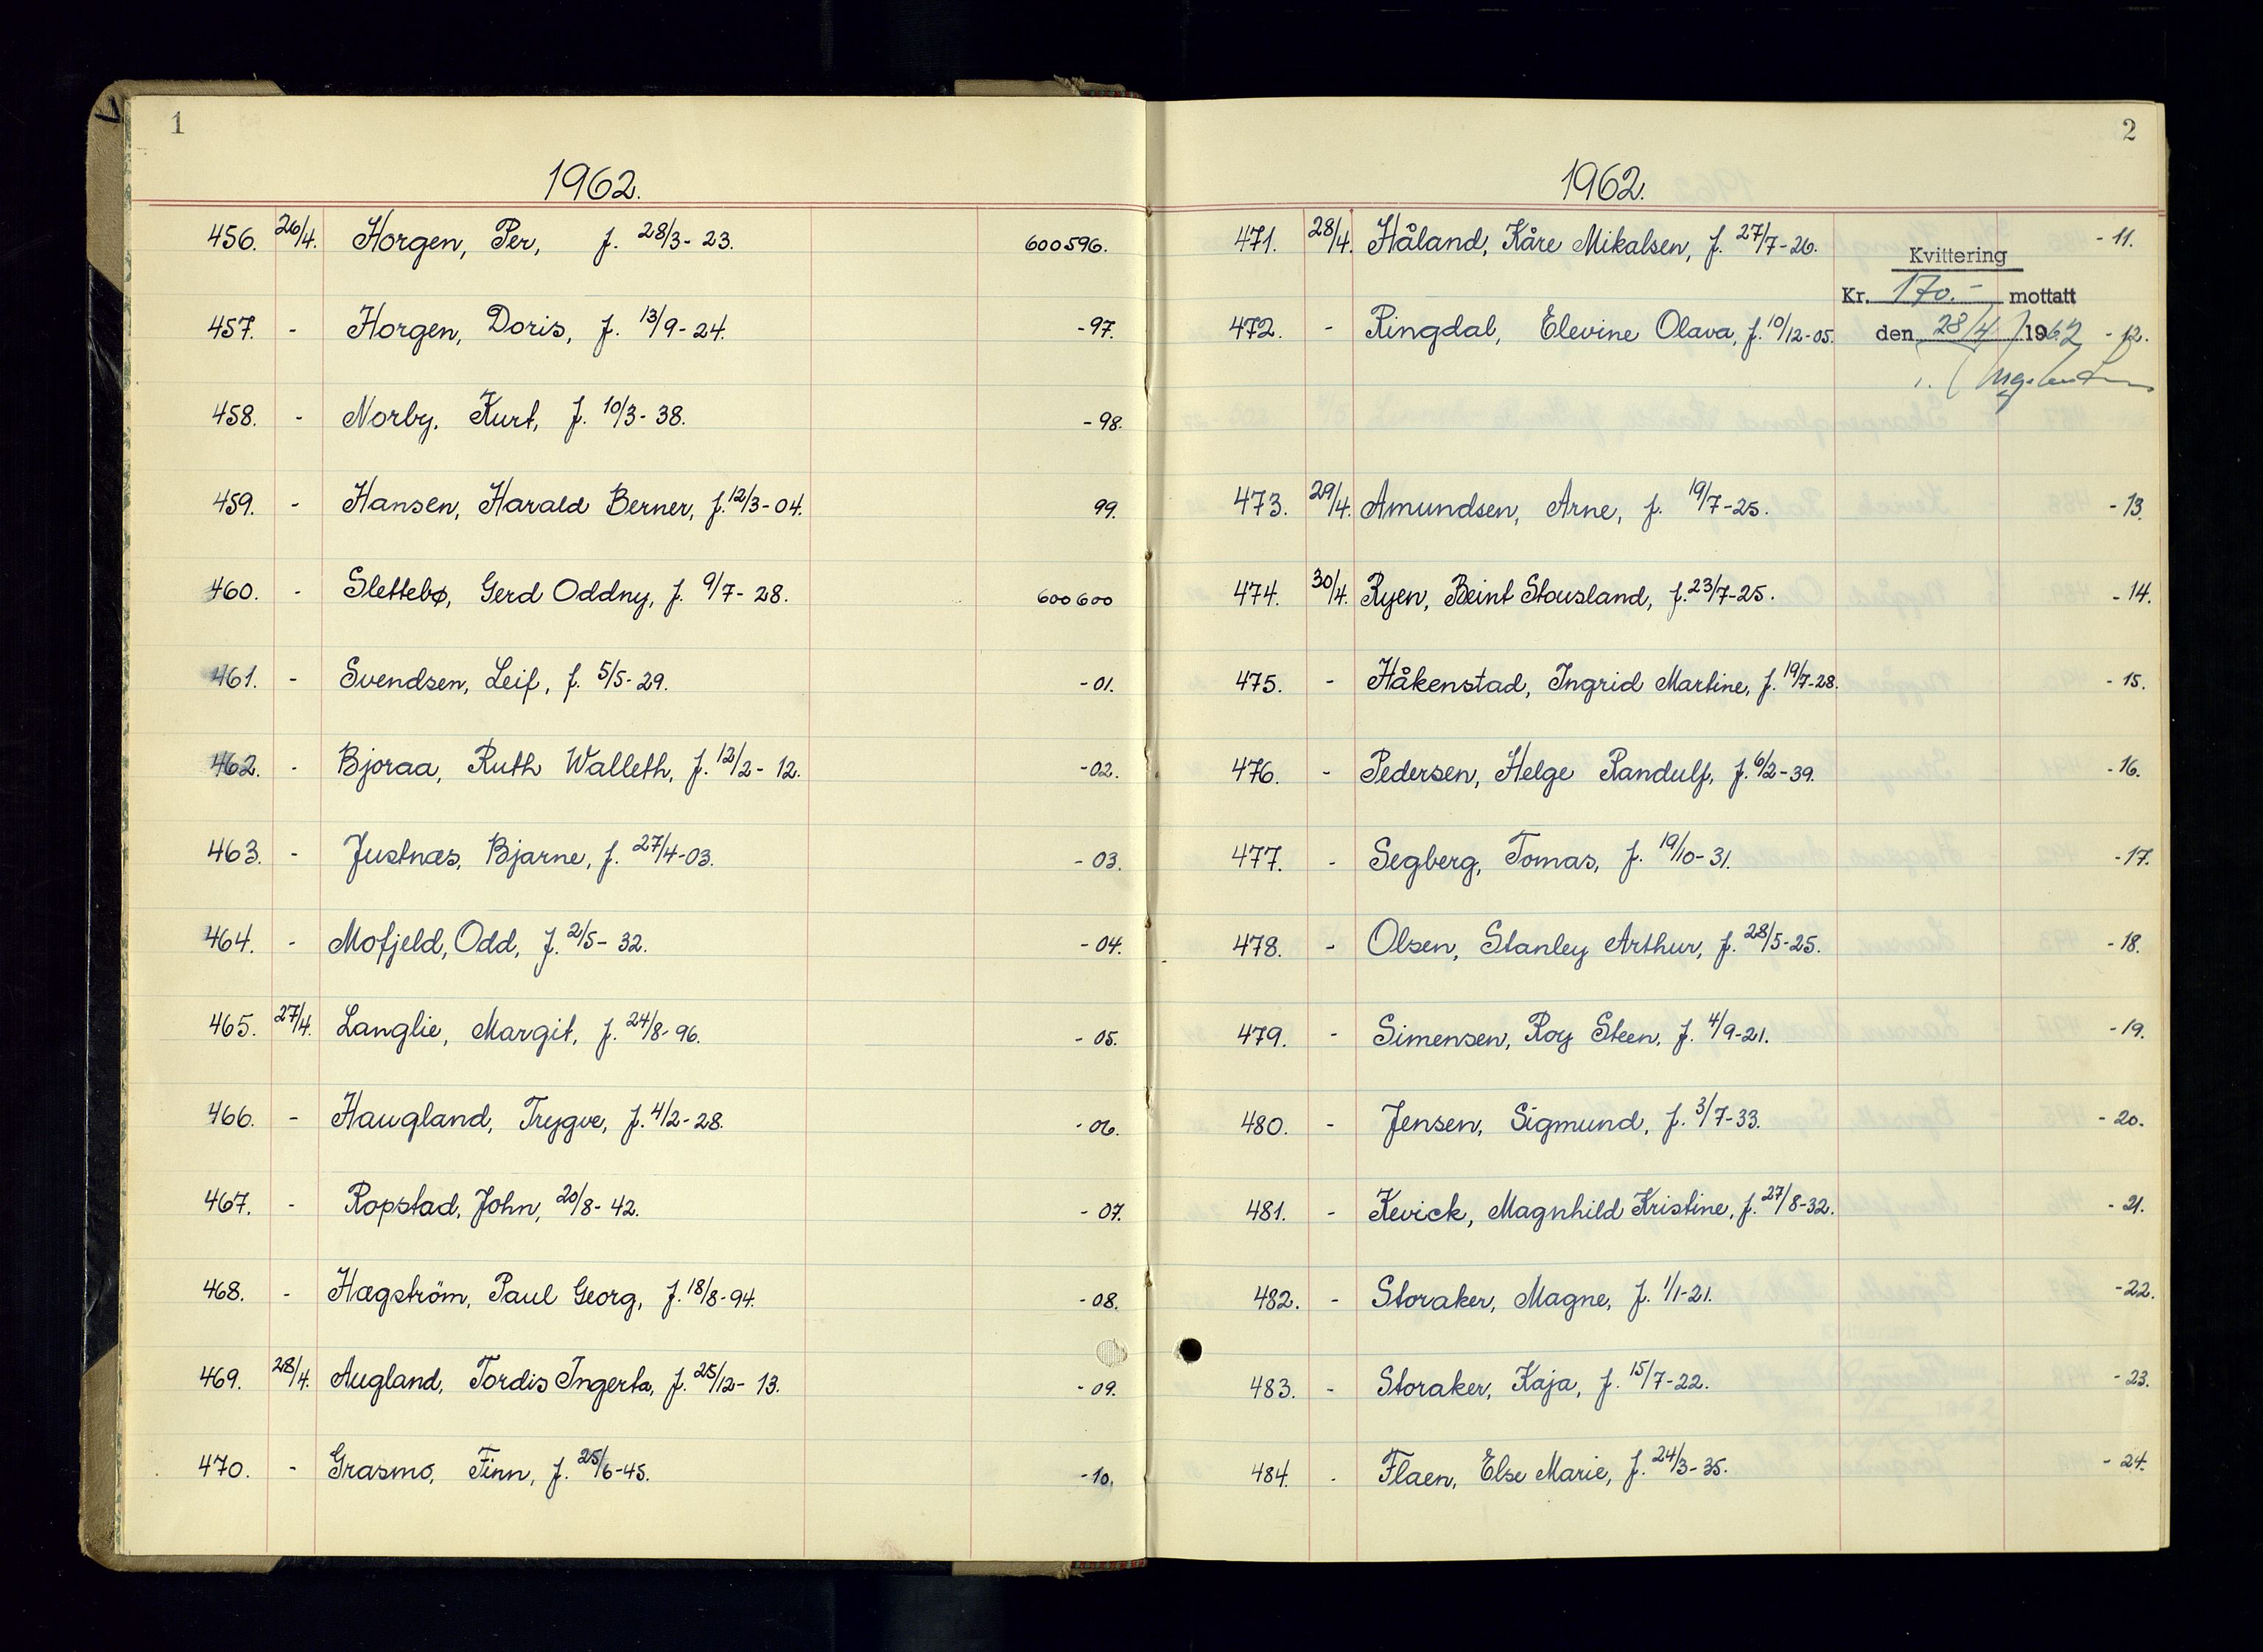 1
1962.
456. 26/4. Horgen, Per, f. 28/3- 23. 600596.
457. - Horgen, Doris, f. 13/9- 24. -97.
458. - Norby, Kurt, f. 10/3- 38. -98.
459. - Hansen, Harald Berner, f. 12/3-04. 99.
460. - Slettebø, Gerd Oddny, f. 9/7- 28. 600600
461. - Svendsen, Leif, f. 5/5- 29. -01.
462. - Bjoraa, Ruth Walleth, f. 12/2- 12. -02.
463. - Justnæs, Bjarne, f. 27/4-03. -03.
464. - Mofjeld, Odd, f. 2/5- 32. -04.
465. 27/4. Langlie, Margit, f. 24/8-96. -05.
466. - Haugland, Trygve, f. 4/2-28. -06.
467. - Ropstad, John, 20/8- 42. -07.
468. - Hægström, Paul Georg, f. 18/8-94. -08.
469. 28/4. Augland, Tordis Ingerta, f. 25/12- 13. -09.
470. - Grasmo, Finn, f. 25/6-45. -10.
2
1962.
471. 28/4. Håland, Kåre Mikalsen, f. 27/7-26. -11.
Kvittering
Kr. 170.- mottatt
472. - Ringdal, Elevine Olava, f. 10/12-05. den 28/4 1962 -12.
473. 29/4. Amundsen, Arne, f. 19/7-25. -13.
474. 30/4. Ryen, Beint Stousland, f. 23/7-25. -14.
475. - Håkenstad, Ingrid Martine, f. 19/7-28. -15.
476. - Pedersen, Helge Randulf, f. 6/2-39. -16.
477. - Segberg, Tomas, f. 19/10-31. -17.
478. - Olsen, Stanley Arthur, f. 28/5-25. -18.
479. - Simensen, Roy Steen, f. 4/9-21. -19.
480. - Jensen, Sigmund, f. 3/7-33. -20.
481. - Kevick, Magnhild Kristine, f. 27/8-32. -21.
482. - Storaker, Magne, f. 1/1-21. -22.
483. - Storaker, Kaja, f. 15/7-22. -23.
484. - Flaen, Else Marie, f. 24/3-35. -24.